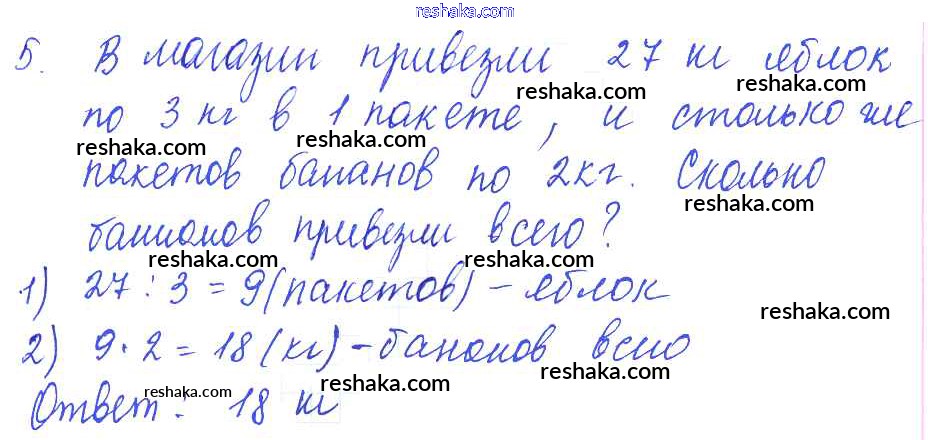 reshaka.com
5. В магазин привезли 27 кг яблок
reshaka.com reshaka.com
по 3 кг в 1 пакете, и столько же
reshaka.com reshaka.com
пакетов бананов по 2кг. Сколько
reshaka.com
бананов привезли всего?
reshaka.com reshaka.com
1) 27 : 3 = 9 (пакетов) – яблок
reshaka.com
2) 9 · 2 = 18 (кг) – бананов всего
reshaka.com reshaka.com reshaka.com
Ответ: 18 кг